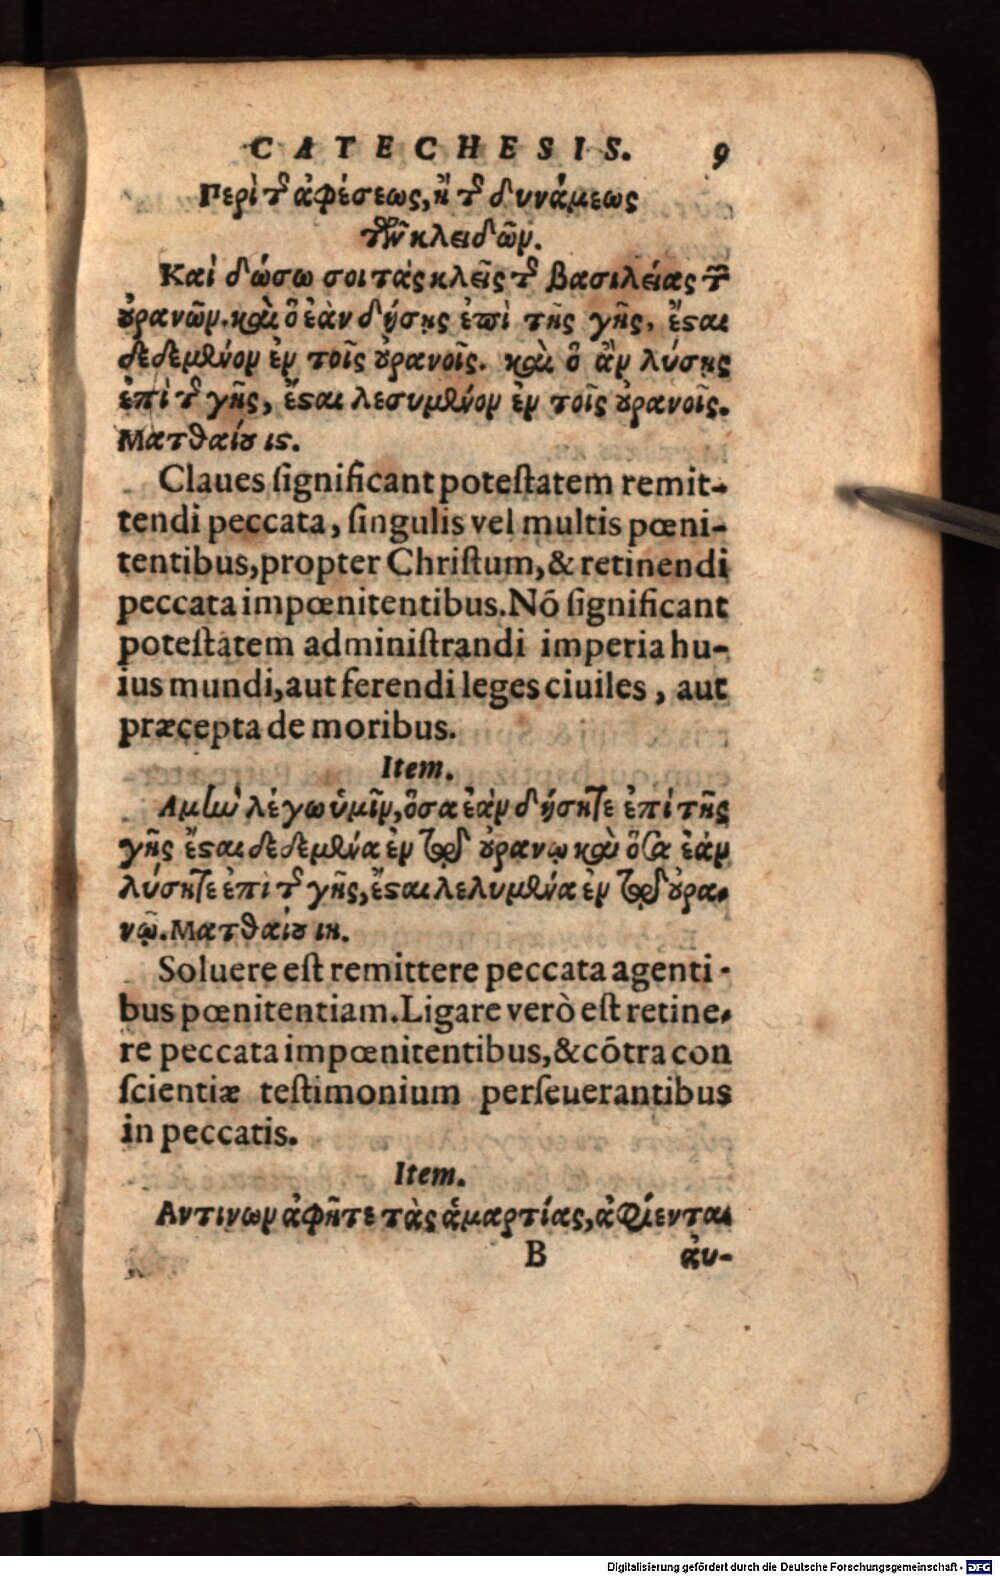 CATECHESIS. 9
Περὶ τ̃ ἀφέσεως, ἢ τ̃ δυνάμεως
τῶν κλειδῶν.
Καὶ δώσω σοι τὰς κλεῖς τ̃ βασιλείας τῶν
ȣρανῶν. καὶ ὃ ἐὰν δήσῃς ἐπὶ τῆς γῆς, ἔϛαι
δεδεμένον ἐν τοῖς ȣρανοῖς. καὶ ὃ ἂν λύσῃς
ἐπὶ τ̃ γῆς, ἔϛαι λεσυμένον ἐν τοῖς ȣρανοῖς.
Ματθαίȣ ιϛ.
Claues ſignificant poteſtatem remit-
tendi peccata, ſingulis vel multis pœni-
tentibus, propter Chriſtum, & retinendi
peccata impœnitentibus. Nō ſignificant
poteſtatem adminiſtrandi imperia hu-
ius mundi, aut ferendi leges ciuiles, aut
præcepta de moribus.
Item.
Αμὼ λέγω ὑμῖν, ὅσα ἐὰν δήσητε ἐπὶ τῆς
γῆς ἔϛαι δεδεμένα ἐν τῷ ȣρανῳ καὶ ὅσα ἐὰν
λύσητε ἐπὶ τ̃ γῆς, ἔϛαι λελυμένα ἐν τῷ ȣρα-
νῷ. Ματθαίȣ ιη.
Soluere eſt remittere peccata agenti-
bus pœnitentiam. Ligare verò eſt retine-
re peccata impœnitentibus, & cōtra con
ſcientiæ teſtimonium perſeuerantibus
in peccatis.
Item.
Αντινων ἀφῆτε τὰς ἁμαρτίας, ἀφίενται
B ἀυ-
Digitalisierung gefördert durch die Deutsche Forschungsgemeinschaft - DFG